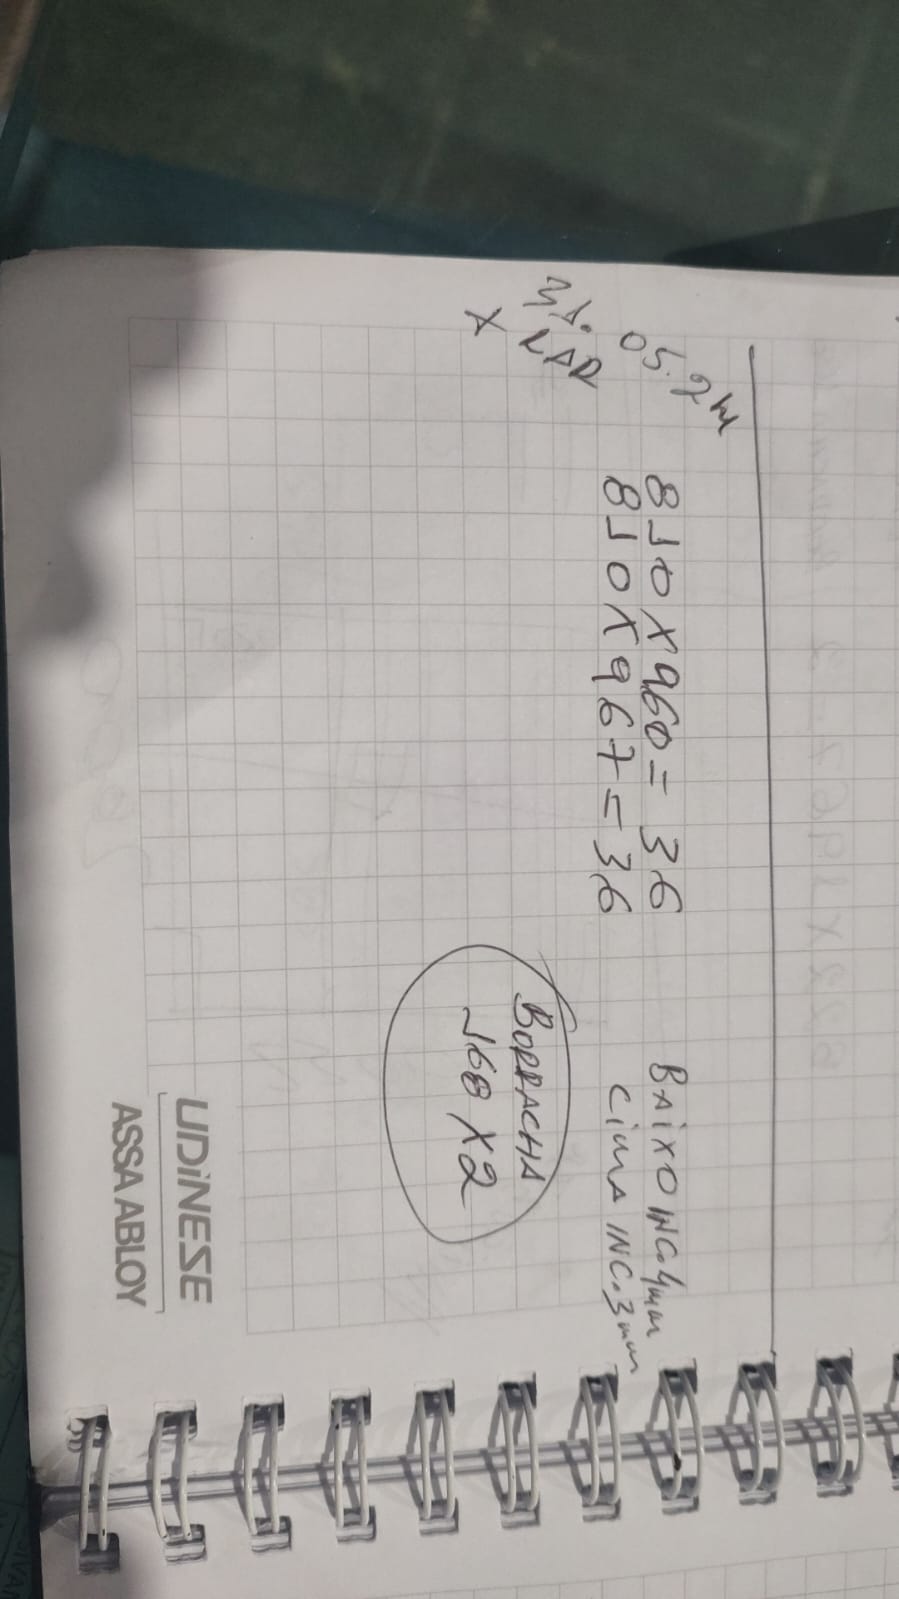 05.2M
810 X 960 = 36 BAIXO INC.4mm
810 X 967 = 36 CimA INC.3mm
LAR
X
BORRACHA
168 X2
UDiNESE
ASSA ABLOY